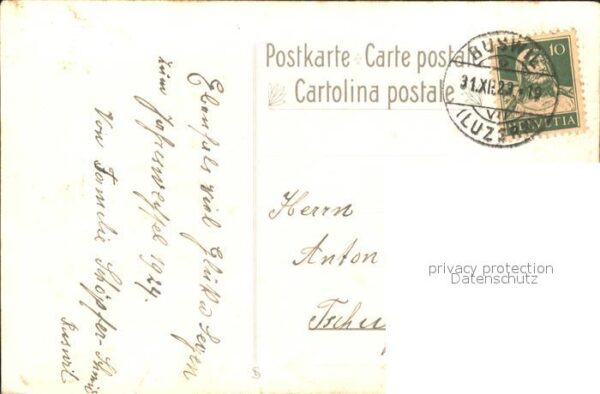 Postkarte Carte posta
Cartolina postale
BUSWIL
31.XII.23.-19
VII
(LUZERN)
10
HELVETIA
Ebenfals viel Glük u Segen
zum Jahreswechsel 1924.
Von Familie Schöpfer-
Buswil
Herrn
Anton
Tschu
privacy protection
Datenschutz